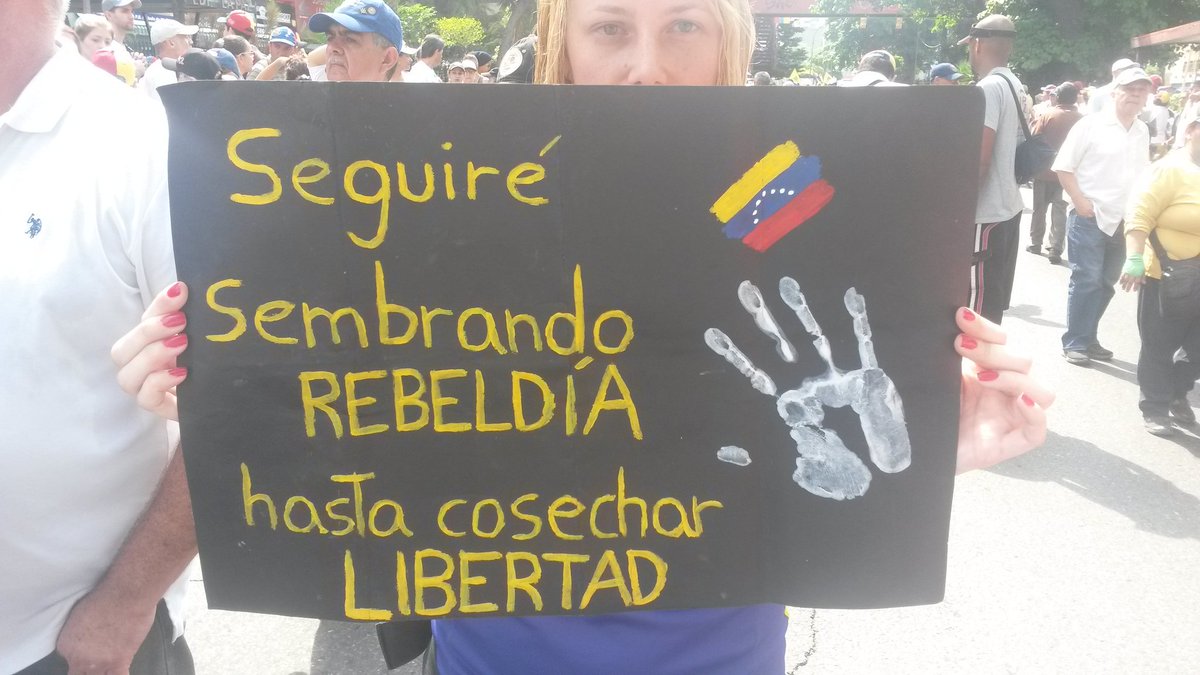 Seguiré
sembrando
REBELDÍA
hasta cosechar
LIBERTAD